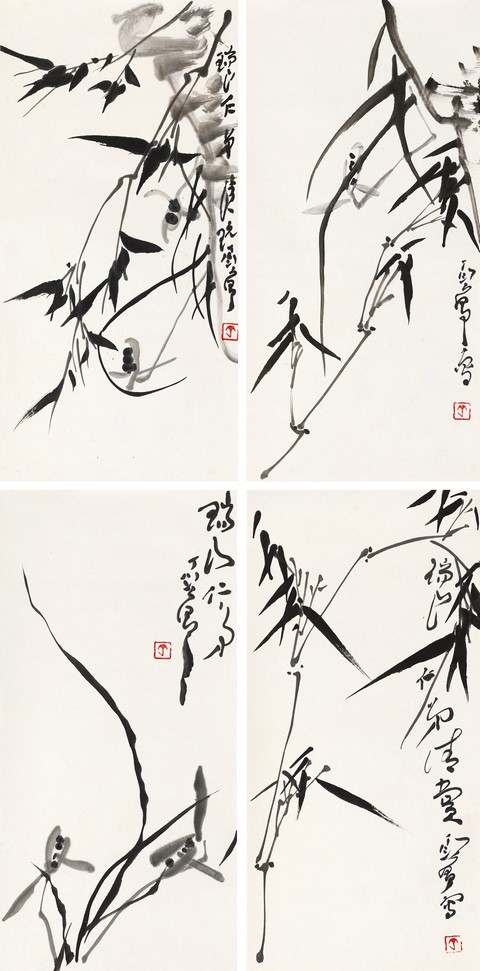 瑞山仁弟清玩丁衍庸
丁衍庸寫
瑞山仁弟
丁衍庸
瑞山仁弟清賞丁衍庸寫